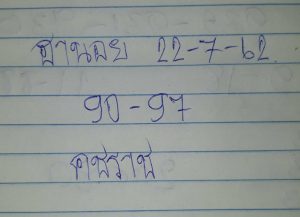 ฮานอย 22-7-62.
90-97
คชราช